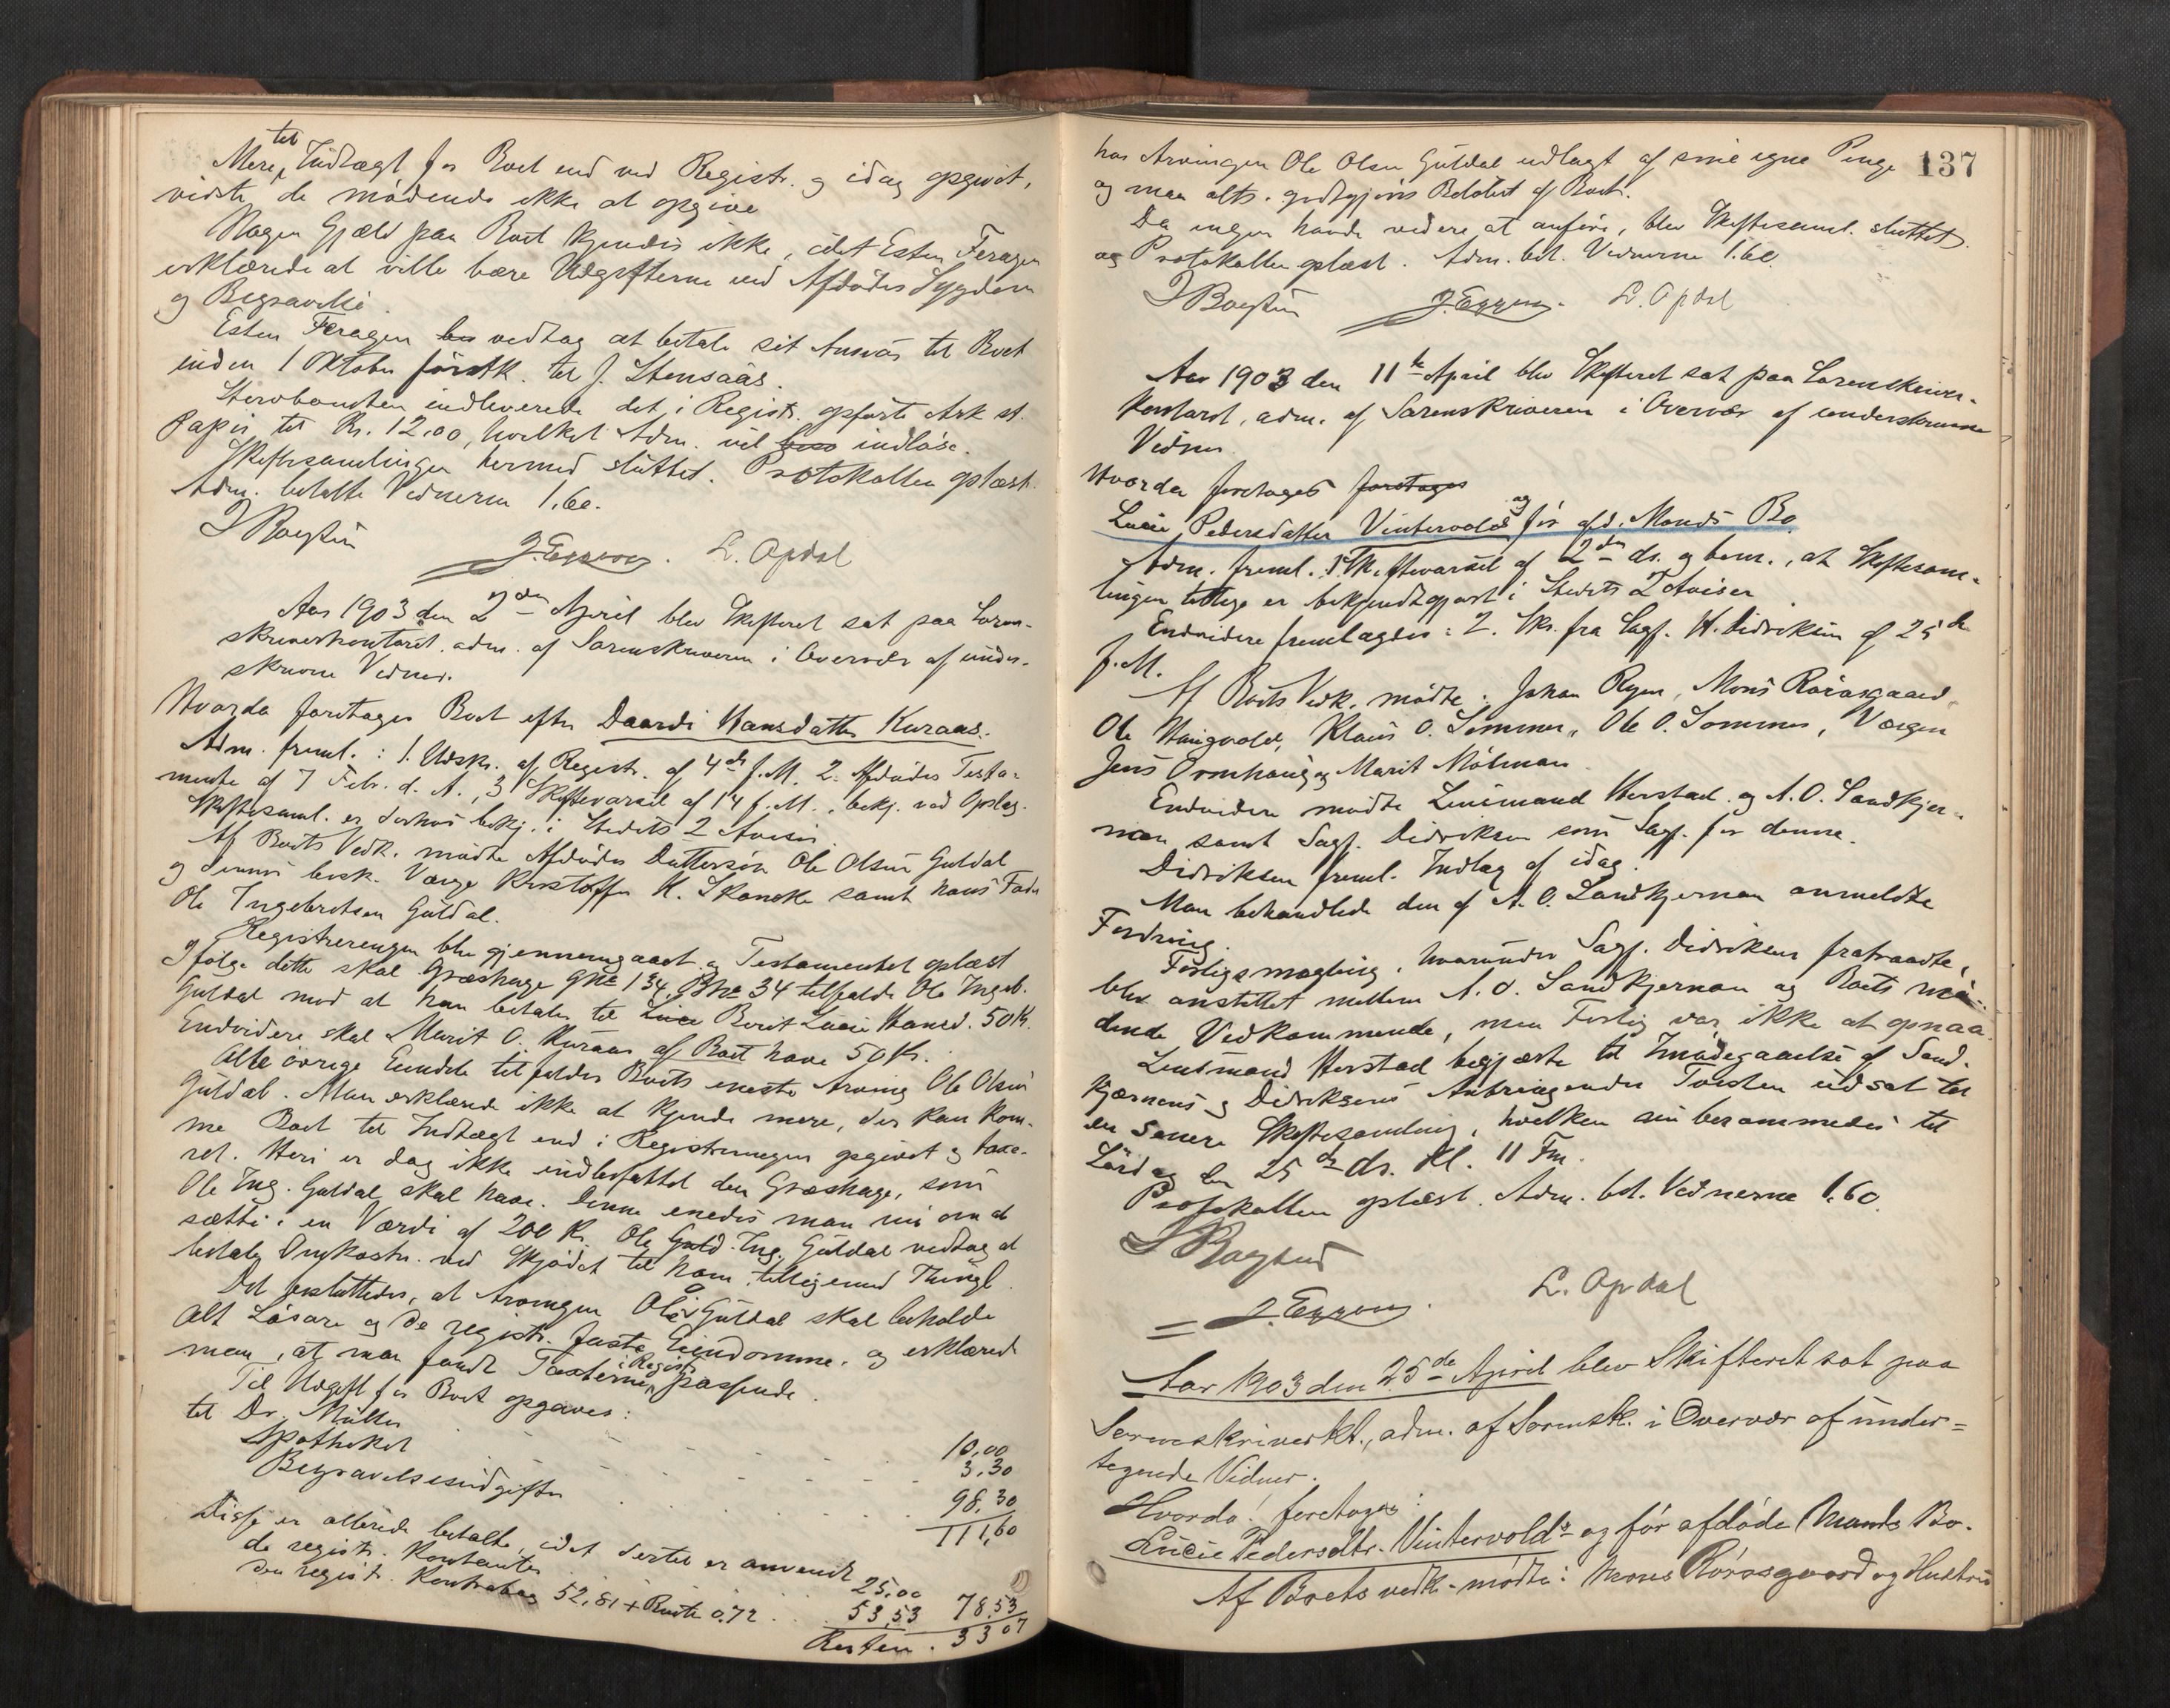 Mere til Indtægt for Boet end ved Registr. og idag opgivet,
vidste de mødende ikke at opgive
Nogen Gjæld paa Boet kjendes ikke, idet Esten Feragen
erklærede at ville bære Udgifterne ved Afdødes Sygdom
og Begravelse.
Esten Feragen vedtog at betale sit Ansvar til Boet
inden 1 Oktober førstk. til J. Stensaas.
Stervboenken indleverede det i Registr. opførte Ark st.
Papir til Kr. 12.00, hvilket Adm. vil indløse.
Skiftesamlingen hermed sluttet. Protokollen oplæst.
Adm. betalte Vidnerne 1.60.
J. Eggen. L. Opdal
Aar 1903 den 2den April blev Skifteret sat paa Soren-
skriverkontoret, adm. af Sorenskriveren i Overvær af under-
skrevne Vidner.
Hvorda foretages Boet efter Daardi Hansdatter Kuraas.
Adm. freml.: 1. Udskr. af Registr. af 4de f.M. 2. Afdødes Testa-
mente af 7 Febr. d. A., 3 Skiftevarsel af 14 f.M., bekj. ved Opslag.
Skiftesaml. er derhos bekj. i Stedets 2 Aviser.
Af Boets Vedk. mødte Afdødes Dattersøn Ole Olsen Guldal
og dennes besk. Værge Kristoffer H. Skancke samt hans Fader
Ole Ingebretsen Guldal.
Registreringen blev gjennemgaaet og Testamentet oplæst
Ifølge dette skal Græshage GNo 134, BNo 34 tilfalde Ole Ingeb.
Guldal mod at han betaler til Berit Lucie Hansd. 50 Kr.
Endvidere skal Marit O. Kuraas af Boet have 50 Kr.
Alle øvrige Eiendele tilfalder Boets eneste Arving Ole Olsen
Guldal. Man erklærede ikke at kjende mere, der kan kom-
me Boet til Indtægt end i Registreringen opgivet og taxe-
ret. Heri er dog ikke indbefattet den Græshage, som
Ole Ing. Guldal skal have. Denne enedes man nu om at
sætte i en Værdi af 200 Kr. Ole Guld. Ing. Guldal vedtog at
betale Omkostn. ved Skjødet til ham tilligemed Thingl.
Det besluttedes, at Arvingen Ole O. Guldal skal beholde
alt Løsøre og de registr. faste Eiendomme, og erklærede
man, at man fandt Taxterne i Registr. passende.
Til Udgift for Boet opgaves:
til Dr. Müller 10.00
Apotheket 3.30
Begravelsesudgifter 98.30
111,60
Disse er allerede betalte, idet dertil er anvendt
de registr. Kontanter 25.00
den registr. Kontrabog 52,81 + Rente 0.72 53,53 78,53
Resten. 33 07
137
har Arvingen Ole Olsen Guldal udlagt af sine egne Penge
og maa alts. godtgjøres Beløbet af Boet.
Da ingen havde videre at anføre, blev Skiftesaml. sluttet
og Protokollen oplæst. Adm. bet. Vidnerne 1.60.
J. Eggen. L. Opdal
Aar 1903 den 11te April blev Skifteret sat paa Sorenskriver-
kontoret, adm. af Sorenskriveren i Overvær af underskrevne
Vidner.
Hvorda foretages foretages
Lucie Pedersdatter Vintervolds og før afd. Mands Bo.
Adm. freml. 1. Skiftevarsel af 2den ds. og bem., at Skiftesam-
lingen tillige er bekjendtgjort i Stedets 2 Aviser.
Endvidere fremlagdes: 2. Skr. fra Sagf. H. Didriksen af 25de
f.M.
Af Boets Vedk. mødte: Johan Ryen, Mons Rørosgaard,
Ole Haugvold, Klaus O. Sommer, Ole O. Sommer, Værgen
Jens Ormhaug og Marit Mølman.
Endvidere mødte Lensmand Herstad og A. O. Sandkjer-
nan samt Sagf. Didriksen som Sagf. for denne.
Didriksen freml. Indlæg af idag.
Man behandlede den af A. O. Sandkjernan anmeldte
Fordring.
Forligsmægling, hvorunder Sagf. Didriksen fratraadte,
blev anstillet mellem A. O. Sandkjernan og Boets mø-
dende Vedkommende, men Forlig var ikke at opnaa.
Lensmand Herstad begjærte til Imødegaaelse af Sand-
kjærnans og Didriksens Anbringender Tvisten udsat til
en senere Skiftesamling, hvilken nu berammedes til
Lørdag den 25de ds. Kl. 11 Fm.
Protokollen oplæst. Adm. bet. Vidnerne 1.60.
L. Opdal
J. Eggen.
Aar 1903 den 25de April blev Skifteret sat paa
Sorenskriverkt., adm. af Sorensk. i Overvær af under=
tegnede Vidner.
Hvorda foretages:
Lucie Pedersdtr. Vintervolds og før afdøde Mands Bo.
Af Boets vedk. mødte: Mons Rørosgaard og Hustru